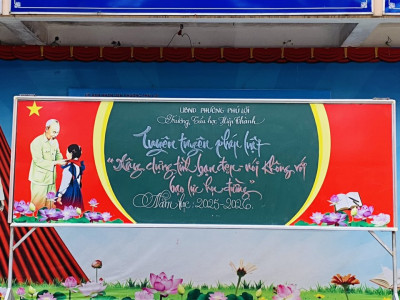 UBND PHƯỜNG PHÚ LỢI
Trường Tiểu học Hiệp Thành
Tuyên truyền pháp luật
"Xây dựng tình bạn đẹp - nói không với
bạo lực học đường"
Năm học: 2025-2026